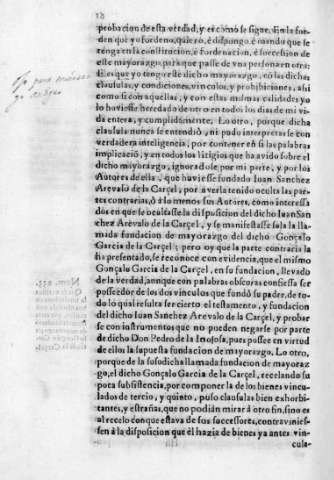 probacion de esta verdad, y es como se sigue. En la fue-
den que yo fordeno, quiero, é dispongo, é mando que se
tenga en la constitucion, é fordenacion, é sucession de
este mayorazgo, para que passe de vna persona en otra;
E es que yo tengo este dicho mayorazgo, có las dichas
clausulas, y condiciones, vinculos, y prohibiciones, assi
como si con aquellas, y con estas mismas calidades yo
lo hoviesse heredado de otro en todos los dias de mi vi-
da entera, y cumplidamente. Lo otro, porque dicha
clausula nunca se entendió, ni pudo interpretarse con
verdadera inteligencia, por contener en sì las palabras
implicaciõ, y en todos los litigios que ha avido sobre el
dicho mayorazgo, ignorãdole por mi parte, y por los
Autores de ella, que huviesse fundado Iuan Sanchez
Arevalo de la Carçel, por averla tenido oculta las par-
tes contrarias, ó à lo menos sus Autores, como interessa-
dos en que se ocultasse la disposicion del dicho Iuan San-
chez Arèvalo de la Carçel, y se manifestasse sola la lla-
mada fundacion de mayorazgo del dicho Gonçalo
Garcia de la Carçel; pero oy que la parte contraria la
ha presentado, se reconoce con evidencia, que el mismo
Gonçalo Garcia de la Carçel, en su fundacion, llevado
de la verdad, aunque con palabras obscuras confiessa ser
possedor de los dos vinculos que fundó su padre, de to-
do lo qual resulta ser cierto el testamento, y fundacion
del dicho Iuan Sanchez Arevalo de la Carçel, y probar
se con instrumentos que no pueden negarse por parte
de dicho Don Pedro de la Inojosa, pues possee en virtud
de ellos la supuesta fundacion de mayorazgo. Lo otro,
porque de la susodicha llamada fundacion de mayoraz
go, el dicho Gonçalo Garcia de la Carçel, recelando su
poca subsistencia, por componerla de los bienes vincu-
lados de tercio, y quinto, puso clausulas bien exhorbi-
tantes, y estrañas, que no podian mirar á otro fin, sino es
al recelo conque estava de sus successores, contravinies-
sen à la disposicion que él hazia de bienes ya antes vin-
cula-